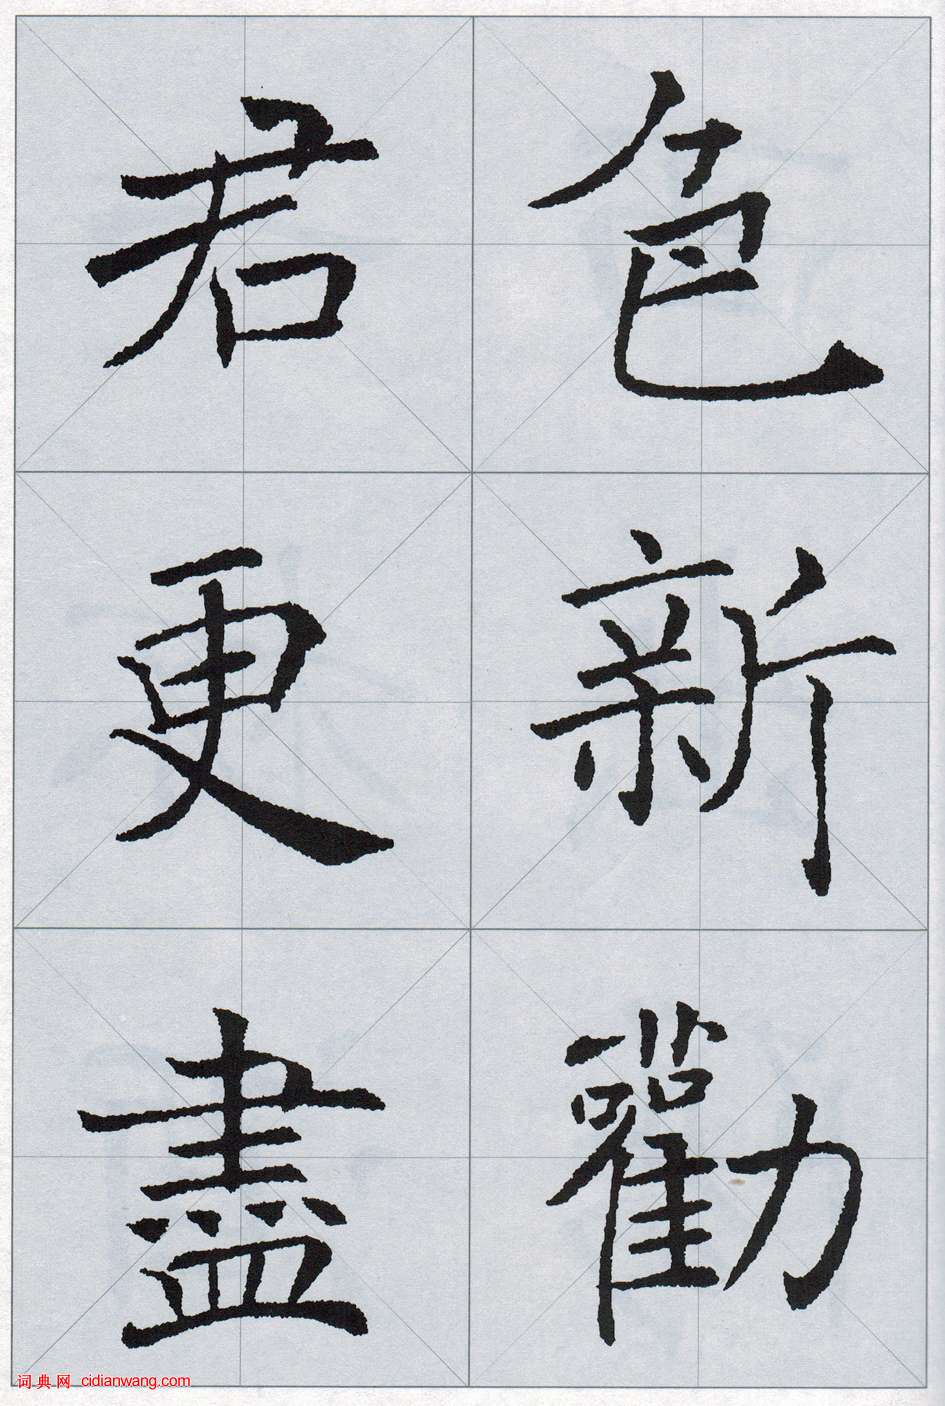 色新勸
君更盡
词典网 cidianwang.com